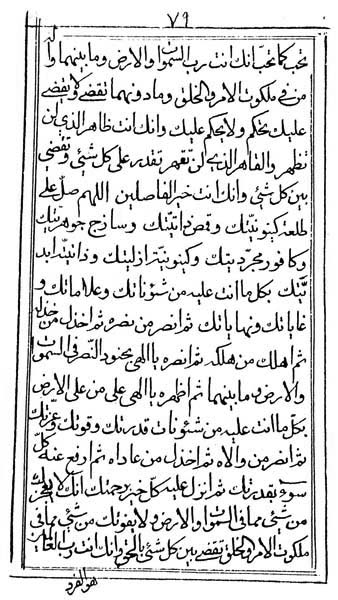 ٧٩
تحب كما تحب انك انت رب السموات والارض وما بينهما وال
من في ملكوت الامر والخلق وما دونهما تقضي كل وتقضي
عليك تحكم ولا يحكم عليك وانك انت ظاهر الذي لن
تظهر والقاهر الذي لن تقهر تقدر على كل شيء وتقضي
بين كل شيء وانك انت خير الفاصلين اللهم صل على
طلعة كينونيتك و ذاتيتك وساذج جوهريتك
وكافور مجرديتك وكينونية ازليتك وذاتية ابد
يتك بكل ما انت عليه من شئوناتك وعلاماتك و
غاياتك ونهاياتك ثم انصر من نصره ثم اخذل من خذله
ثم اهلك من هلكه ثم انصره باالهي بجنود النصر في السموات
والارض وما بينهما ثم اظهره ياالهي على من على الارض
بكل ما انت عليه من شئونات قدرتك وقوتك وعزتك
ثم انصر من والاه ثم اخذل من عاداه ثم ارفع عنه كل
سوء بقدرتك ثم انزل عليه كل خير برحمتك انك لا يعجزك
من شيء مما في السموات والارض ولا يفوتك من شيء مما في
ملكوت الامر والخلق تقضي بين كل شيء بالحق وانك انت رب العالمين
هو الفرد